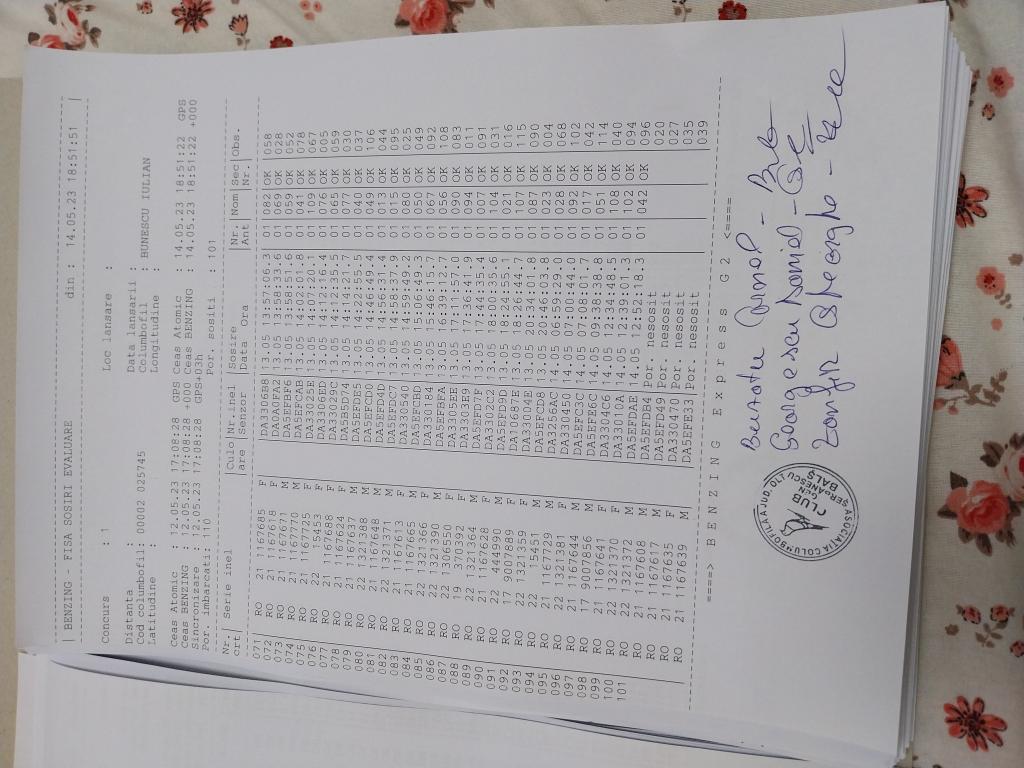 | BENZING - FISA SOSIRI EVALUARE din : 14.05.23 18:51:51 |
Concurs : 1 Loc lansare :
Distanta : Data lansarii :
Cod columbofil: 00002 025745 Columbofil : BUNESCU IULIAN
Latitudine : Longitudine :
Ceas Atomic : 12.05.23 17:08:28 GPS Ceas Atomic : 14.05.23 18:51:22 GPS
Ceas BENZING : 12.05.23 17:08:28 +000 Ceas BENZING : 14.05.23 18:51:22 +000
Sincronizare : 12.05.23 17:08:28 GPS+03h
Por. imbarcati: 110 Por. sositi : 101
Nr. Serie inel |Culo|Nr.inel |Sosire |Nr. |Nom|Sec|Obs.
Crt |are |Senzor |Data Ora |Ant | |Nr.|
071 RO 21 1167685 F DA3306B8 13.05 13:57:06.3 01 082 OK 058
072 RO 21 1167618 F DADA0FA2 13.05 13:58:33.6 01 069 OK 028
073 RO 21 1167671 M DA5EFBF6 13.05 13:58:51.6 01 059 OK 052
074 RO 21 1167770 M DA5EFCAB 13.05 14:02:01.8 01 041 OK 078
075 RO 21 1167725 F DA33025E 13.05 14:07:20.1 01 109 OK 067
076 RO 22 15453 F DA3306ED 13.05 14:12:16.4 01 OK
077 RO 21 1167688 F DA33029C 13.05 14:12:35.4 01 065 OK 059
078 RO 21 1167624 F DA5E5D74 13.05 14:14:21.7 01 077 OK 030
079 RO 21 1167637 M DA5EFDE5 13.05 14:22:55.5 01 040 OK 037
080 RO 22 1321388 M DA5EFCD0 13.05 14:46:49.4 01 049 OK 106
081 RO 21 1167648 M DA5EFD4D 13.05 14:56:31.4 01 013 OK 044
082 RO 22 1321371 M DA5EFDC7 13.05 14:57:37.9 01 015 OK 095
083 RO 21 1167613 F DA330540 13.05 14:59:49.4 01 OK 025
084 RO 21 1167665 M DA5EFCBD 13.05 15:06:49.3 01 050 OK 049
085 RO 22 1321366 F DA330184 13.05 15:40:16.7 01 067 OK 092
086 RO 22 1321390 F DA5EFBFA 13.05 16:39:12.7 01 056 OK 108
087 RO 22 1306550 M DA3305EE 13.05 17:11:57.0 01 090 OK 083
088 RO 19 370392 F DA3303E9 13.05 17:36:41.9 01 094 OK 011
089 RO 22 1321364 F DA5EFD7F 13.05 17:44:35.4 01 007 OK 091
090 RO 21 1167628 M DA33022F 13.05 18:00:35.6 01 104 OK 031
091 RO 22 444990 F DA5EFD9D 13.05 18:22:55.1 01 021 OK 016
092 RO 17 9007889 M DA10687E 13.05 18:24:44.7 01 107 OK 115
093 RO 22 1321359 F DA33004E 13.05 20:34:01.8 01 087 OK 090
094 RO 22 15451 DA5EFCD8 13.05 20:46:03.8 01 023 OK 004
095 RO 21 1167729 M DA3256AC 14.05 06:59:29.0 01 028 OK 068
096 RO 22 1321381 F DA330450 14.05 07:00:44.0 01 092 OK 102
097 RO 21 1167644 M DA5EFC3C 14.05 07:08:01.7 01 017 OK 042
098 RO 17 9007856 M DA5EFE6C 14.05 09:38:38.8 01 051 OK 114
099 RO 21 1167641 F DA3304C6 14.05 12:34:48.5 01 108 OK 040
100 RO 22 1321370 F DA33010A 14.05 12:39:01.3 01 102 OK 094
101 RO 22 1321372 M DA5EFDAE 14.05 12:52:18.3 01 042 OK 096
RO 21 1167608 M DA5EFDB4 Por. nesosit 020
RO 21 1167617 F DA5EFD49 Por. nesosit 027
RO 21 1167635 F DA330470 Por. nesosit 035
RO 21 1167639 M DA5EFE33 Por. nesosit 039
====> B E N Z I N G E x p r e s s G 2 <====
Georgescu
Gheorghe
ASOCIATIA COLUMBOFILA JUD. OLT
CLUB
BALŞ